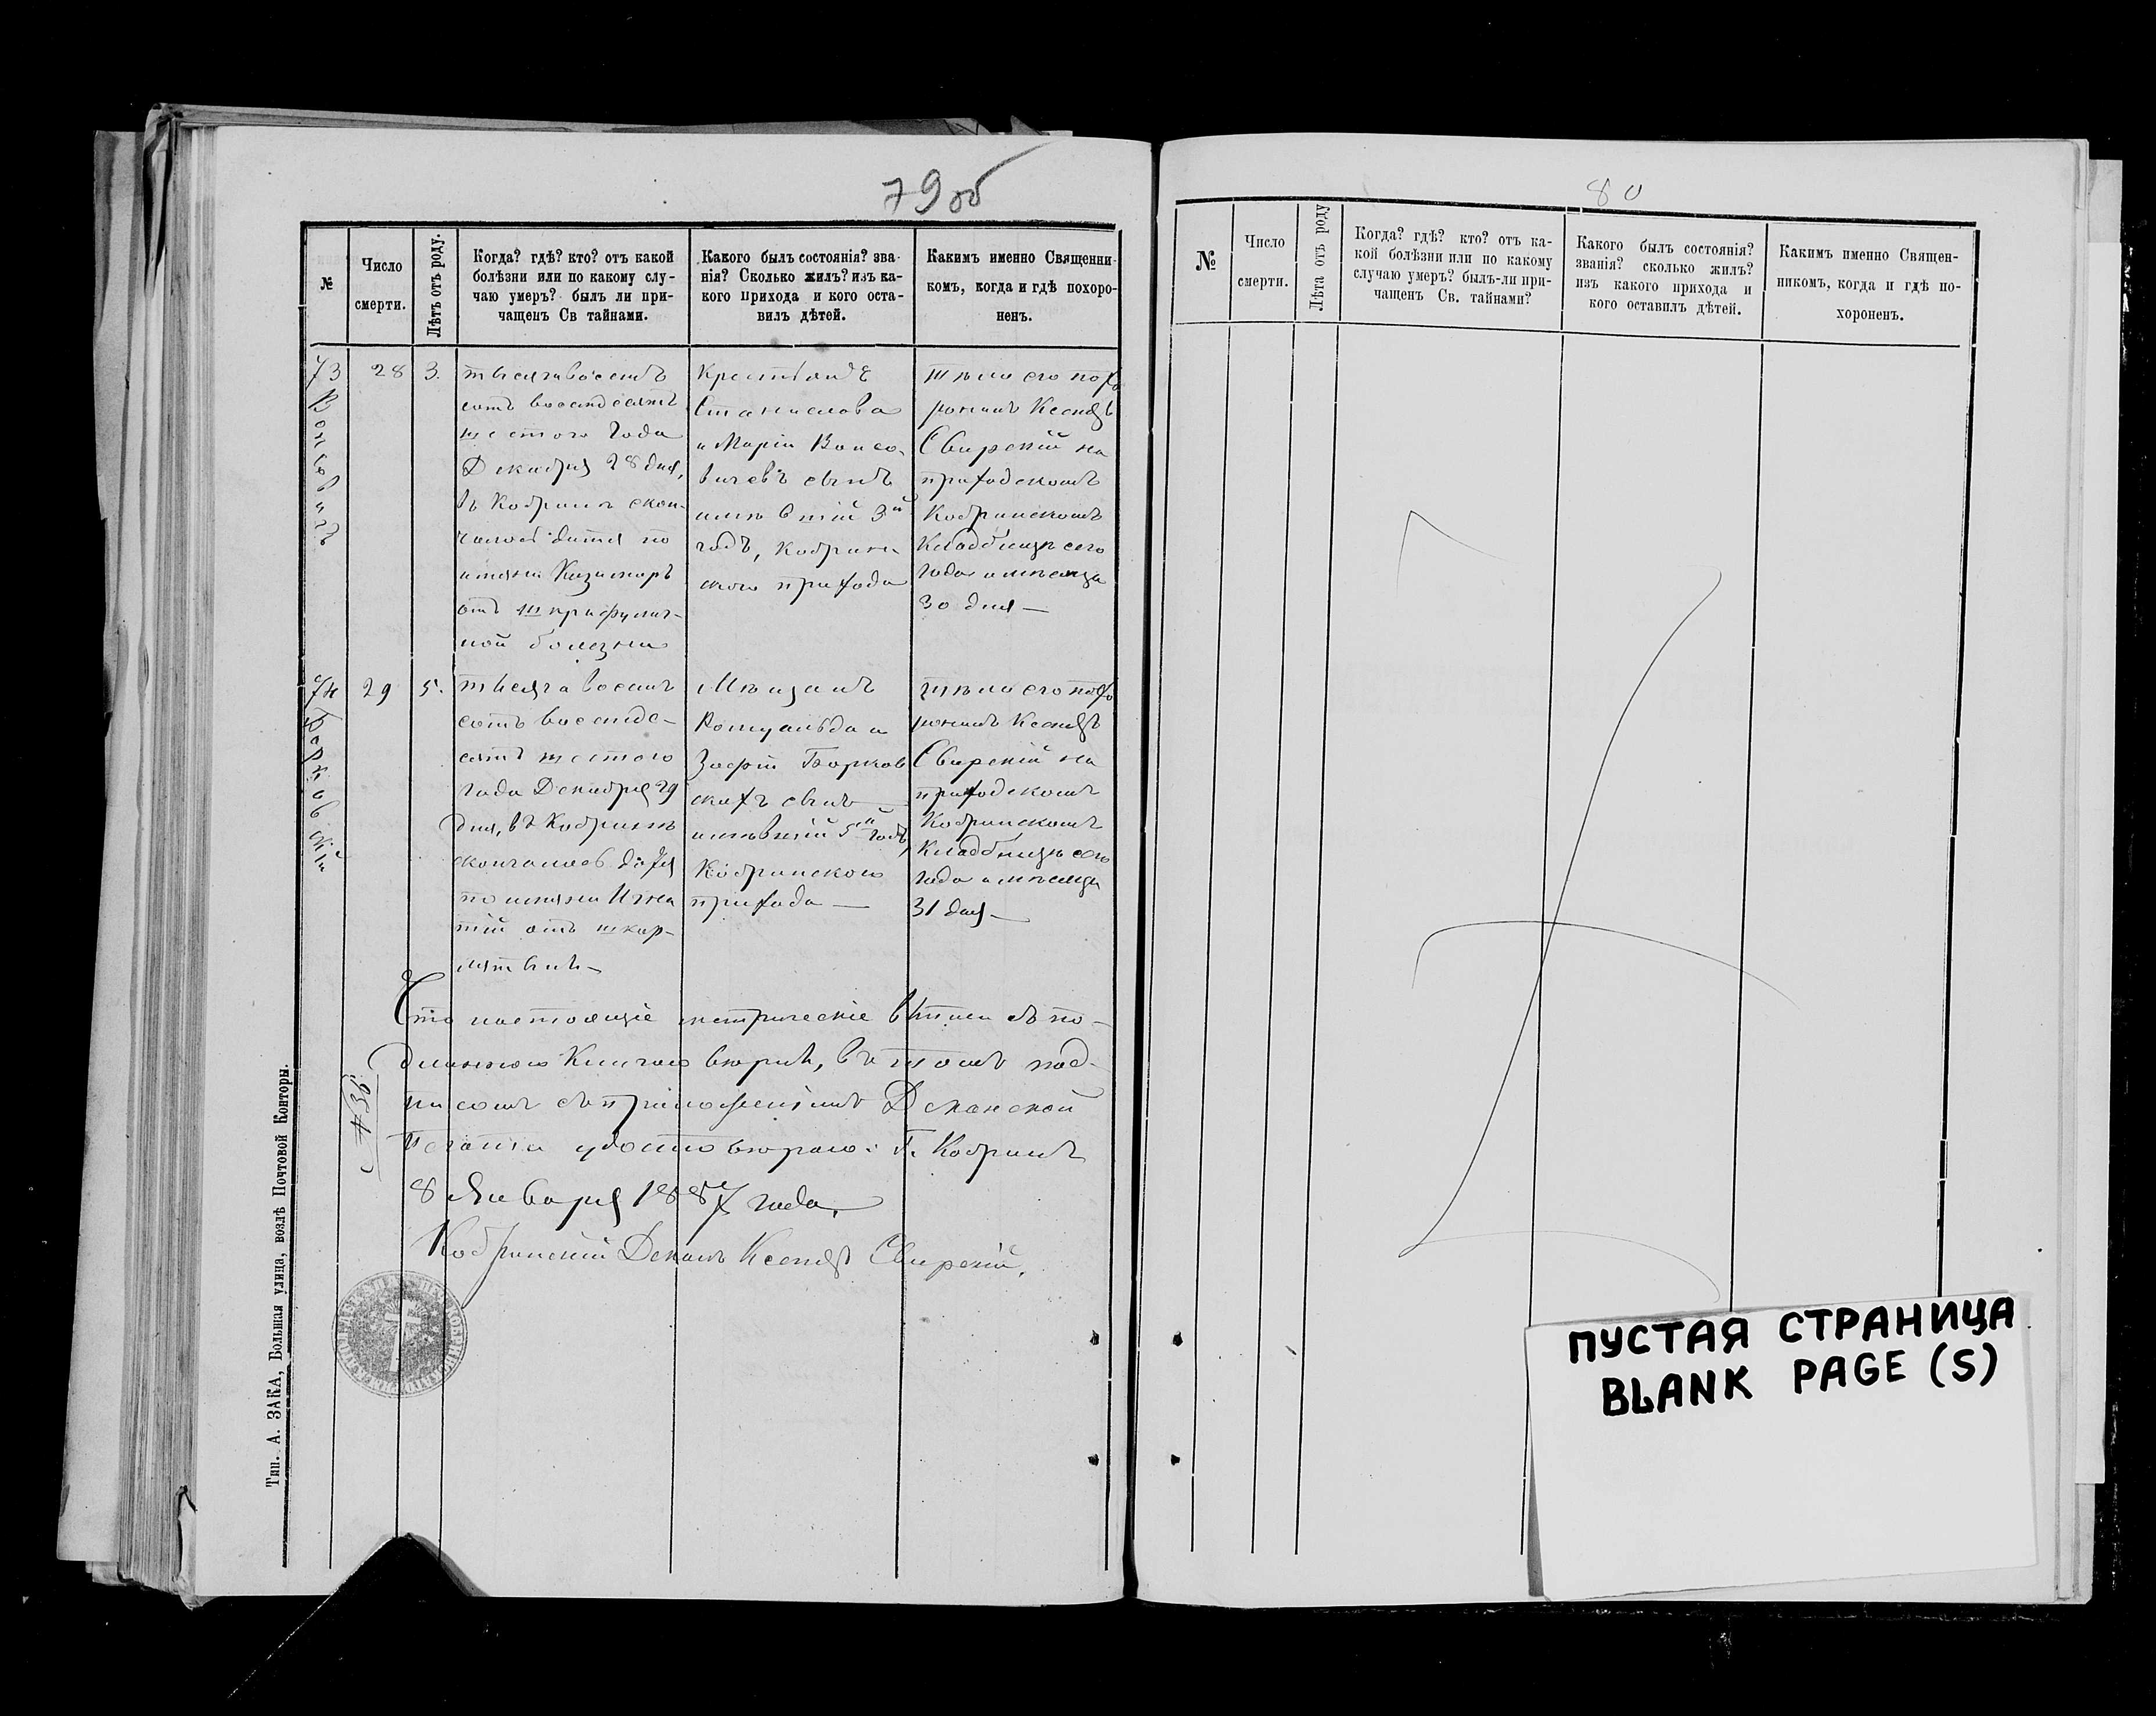 79об
№
Число
смерти.
Лѣтъ отъ роду.
Когда? гдѣ? кто? отъ какой
болѣзни или по какому слу-
чаю умеръ? былъ ли при-
чащенъ Св тайнами.
Какого былъ состоянія? зва-
нія? Сколько жилъ? изъ ка-
кого прихода и кого оста-
вилъ дѣтей.
Какимъ именно Священни-
комъ, когда и гдѣ похоро-
ненъ.
73
28
3.
тысяча восемъ
сотъ восемдесятъ
шестого года
Декабря 28 дня,
въ Кобринѣ скон-
чалось дитя по
имени Казимиръ
отъ
ной болезни
Крестьянъ
Станислава
и Маріи Вонсо-
вичевъ сынъ
имѣвшій 3й
годъ, Кобрин-
скаго прихода
тѣло его похо
ронилъ Ксендзъ
Свирскій на
приходскомъ
Кобринскомъ
Кладбищѣ сего
года и мѣсяца
30 дня —
74
Борковскій
29
5.
тысяча восемъ
сотъ восемде-
сятъ шестого
года Декабря 29
дня, въ Кобринѣ
скончалось дитя
по имени Игна
тій отъ шкар-
лятыны —
Мѣщанъ
Ромуальда и
Зофіи Борков
скихъ сынъ —
имѣвшій 5й годъ,
Кобринского
прихода —
тѣло его похо
ронилъ Ксендзъ
Свирскій на
приходскомъ
Кобринскомъ
Кладбищѣ сего
года и мѣсяца
31 дня —
Что настоящіе метрическіе выписи съ по-
длинною Книгою вѣрны, въ томъ под-
писомъ съ приложеніемъ Деканской
Печати удостовѣряю: Г. Кобринъ
8 Января 1887 года.
Кобринскій Деканъ Ксендзъ Свирскій.
Тип. А. ЗАКА, Большая улица, возлѣ Почтовой Конторы.
80
№
Число
смерти.
Лѣта отъ роду
Когда? гдѣ? кто? отъ ка-
кой болѣзни или по какому
случаю умеръ? былъ-ли при-
чащенъ Св. тайнами?
Какого былъ состоянія?
званія? сколько жилъ?
изъ какого прихода и
кого оставилъ дѣтей.
Какимъ именно Священ-
никомъ, когда и гдѣ по-
хороненъ.
ПУСТАЯ СТРАНИЦА
BLANK PAGE (S)